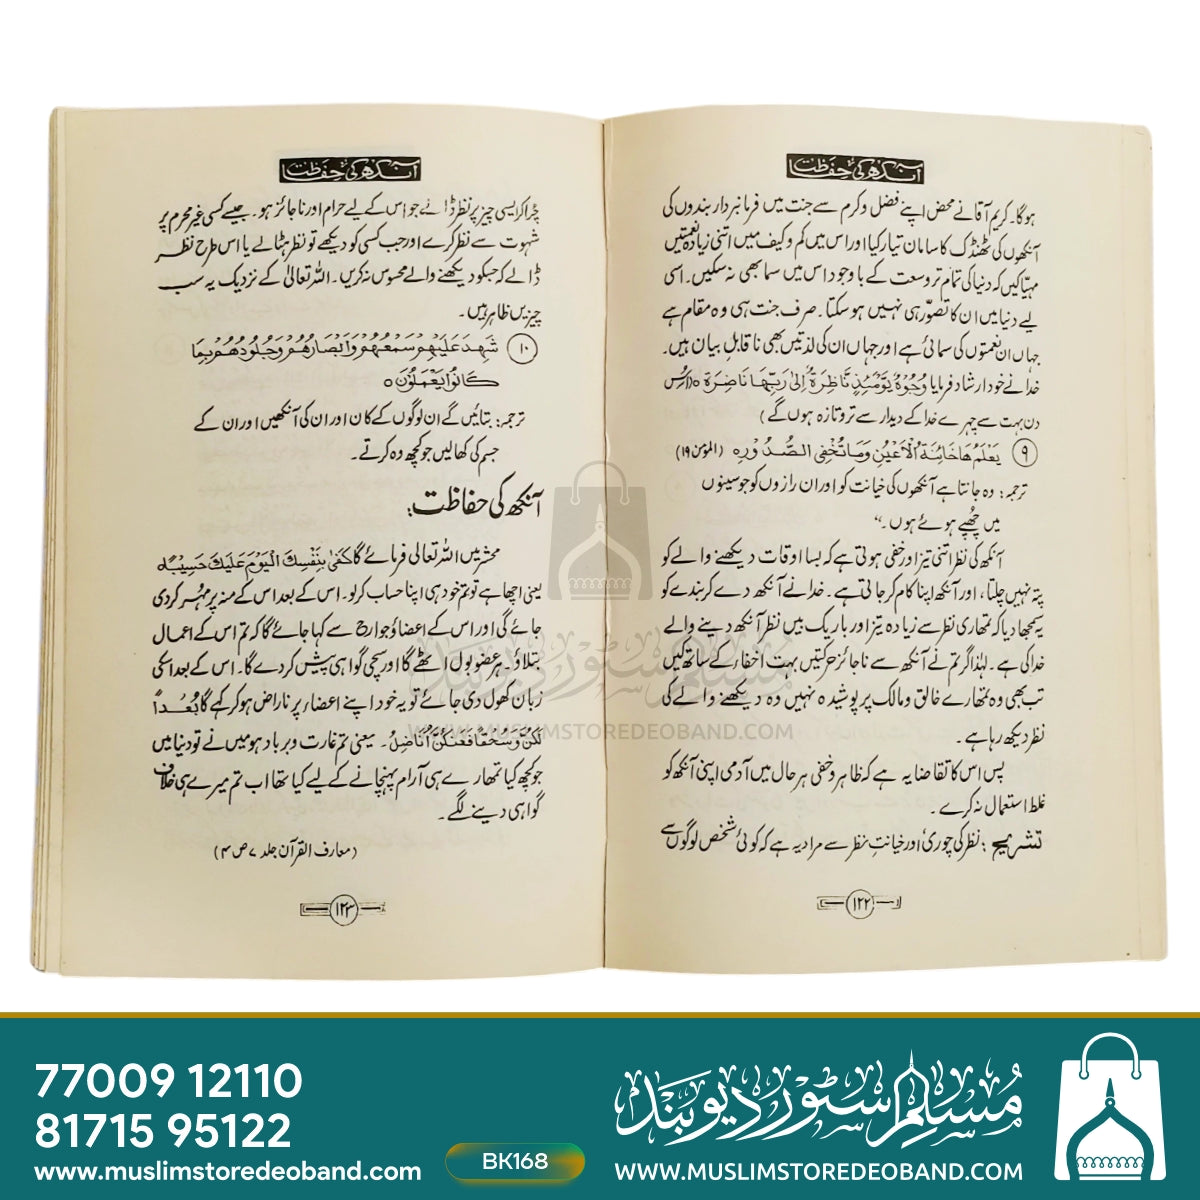 آنکھ کی حفاظت
ہوگا۔ کریم آقا نے محض اپنے فضل و کرم سے جنت میں فرمانبردار بندوں کی
آنکھوں کی ٹھنڈک کا سامان تیار کیا اور اس میں کم و کیف میں اتنی زیادہ نعمتیں
مہیّا کیں کہ دنیا کی تمام تر وسعت کے باوجود اس میں سما بھی نہ سکیں۔ اسی
لیے دنیا میں ان کا تصوّر ہی نہیں ہو سکتا۔ صرف جنت ہی وہ مقام ہے
جہاں ان نعمتوں کی سمائی ہے اور جہاں ان کی لذتیں بھی ناقابلِ بیان ہیں۔
خدا نے خود ارشاد فرمایا وُجُوْهٌ يَّوْمَئِذٍ نَّاظِرَةٌ اِلٰى رَبِّهَا نَاضِرَة ٥ (اس
دن بہت سے چہرے خدا کے دیدار سے تروتازہ ہوں گے)
۹ يَعْلَمُ هَا خَائِنَةَ الْاَعْيُنِ وَمَا تُخْفِى الصُّدُوْرِه (المومن ۱۹)
ترجمہ: وہ جانتا ہے آنکھوں کی خیانت کو اور ان رازوں کو جو سینوں
میں چُھپے ہوئے ہوں۔"
آنکھ کی نظر اتنی تیز اور خفی ہوتی ہے کہ بسا اوقات دیکھنے والے کو
پتہ نہیں چلتا، اور آنکھ اپنا کام کر جاتی ہے۔ خدا نے آنکھ دے کر بندے کو
یہ سمجھا دیا کہ تمہاری نظر سے زیادہ تیز اور باریک بیں نظر آنکھ دینے والے
خدا کی ہے۔ لہٰذا اگر تم نے آنکھ سے ناجائز حرکتیں بہت اخفاء کے ساتھ کیں
تب بھی وہ تمہارے خالق و مالک پر پوشیدہ نہیں وہ دیکھنے والے کی
نظر دیکھ رہا ہے۔
پس اس کا تقاضا یہ ہے کہ ظاہر و خفی ہر حال میں آدمی اپنی آنکھ کو
غلط استعمال نہ کرے۔
تشریح: نظر کی چوری اور خیانتِ نظر سے مراد یہ ہے کہ کوئی شخص لوگوں سے
۱۲۲
آنکھ کی حفاظت
چُرا کر ایسی چیز پر نظر ڈالے جو اس کے لیے حرام اور ناجائز ہو۔ جیسے کسی غیر محرم پر
شہوت سے نظر کرے اور جب کسی کو دیکھے تو نظر ہٹالے یا اس طرح نظر
ڈالے کہ جسکو دیکھنے والے محسوس نہ کریں۔ اللہ تعالیٰ کے نزدیک یہ سب
چیزیں ظاہر ہیں۔
۱۰ شَهِدَ عَلَيْهِمْ سَمْعُهُمْ وَاَبْصَارُهُمْ وَجُلُوْدُهُمْ بِمَا
كَانُوْا يَعْمَلُوْنَ ٥
ترجمہ: بتائیں گے ان لوگوں کے کان اور ان کی آنکھیں اور ان کے
جسم کی کھالیں جو کچھ وہ کرتے۔
آنکھ کی حفاظت:
محشر میں اللہ تعالی فرمائے گا كَفٰى بِنَفْسِكَ الْيَوْمَ عَلَيْكَ حَسِيْبًا ه
یعنی اچھا ہے تو تم خود ہی اپنا حساب کر لو۔ اس کے بعد اس کے منہ پر مہر کر دی
جائے گی اور اس کے اعضا و جوارح سے کہا جائے گا کہ تم اس کے اعمال
بتلاؤ۔ ہر عضو بول اٹھے گا اور سچی گواہی پیش کر دے گا۔ اس کے بعد اسکی
زبان کھول دی جائے تو یہ خود اپنے اعضاء پر ناراض ہو کر کہے گا بُعْدًا
لَكُنَّ وَسُحْقًا فَعَنْكُنَّ اُنَاضِلُ۔ یعنی تم غارت و برباد ہو میں نے تو دنیا میں
جو کچھ کیا تمھارے ہی آرام پہنچانے کے لیے کیا تھا اب تم میرے ہی خلاف
گواہی دینے لگے۔
(معارف القرآن جلد ۷ ص ۴)
۱۲۳
مسلم سٹور دیوبند
WWW.MUSLIMSTOREDEOBAND.COM
77009 12110
81715 95122
www.muslimstoredeoband.com
BK168
مسلم سٹور دیوبند
WWW.MUSLIMSTOREDEOBAND.COM